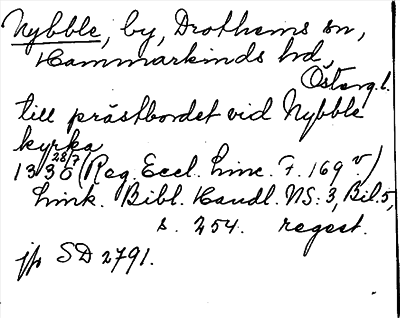 Nybble, by, Drothems sn,
Hammarkinds hd,
Österg.l.
till prästbordet vid Nybble
kyrka
1330 28/7 (Reg. Eccl. Linc. F. 169 v)
Link. Bibl. Handl. NS: 3, Bil. 5,
s. 254. regest.
jfr SD 2791.